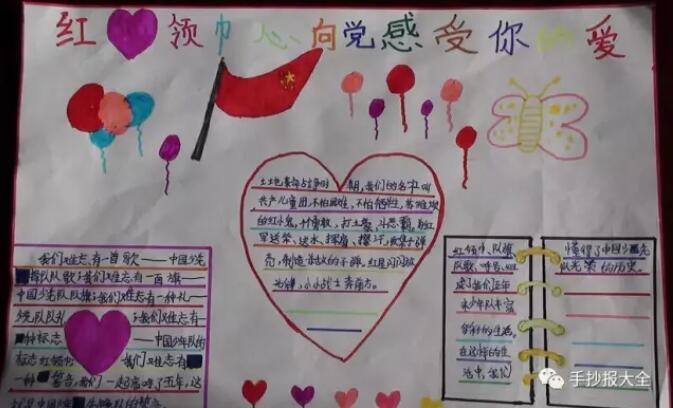 红领巾心向党感受你的爱
土地革命战争时期,我们的名字叫
共产儿童团,不怕困难,不怕牺牲,苦难
的红小鬼,十勇敢,打土豪,斗恶霸,
军送茶、送水、
亮,制造 的子弹,红星闪闪放
光辉,小小战士奔前方。
我们难忘,有一首歌——中国少先
队队歌,我们难忘有一面旗——
中国少先队队旗,我们难忘有一种礼——
少先队队礼,我们难忘有
一种标志——中国少年队的
标志红领巾,我们难忘有
一种誓言,我们一起高呼了五年,这
就是中国
红领巾、队旗
队歌、呼号,组
成了我们五年
来少年队丰富
多彩的生活。
在这样的生
活中,我们
懂得了中国少先
队光荣的历史。
手抄报大全